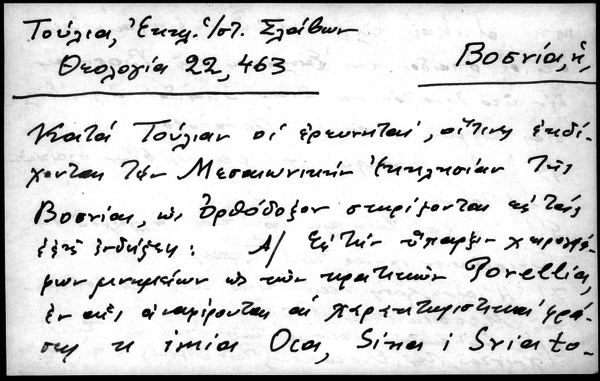 Τούλια, Ἐκκλ. ἱ/στ. Σλάβων
Θεολογία 22, 463
Βοσνία, ἡ,
Κατά Τούλιαν οἱ ἐρευνηταί, οἵτινες ἐκδέ-
χονται τήν Μεσαιωνικήν Ἐκκλησίαν τῆς
Βοσνίας, ὡς Ὀρθόδοξον στηρίζονται εἰς τάς
ἑξῆς ἐνδείξεις: Α/ Εἰς τήν ὕπαρξιν χειρογρά-
φων μνημείων ὡς τῶν πρακτικῶν Povellia,
ἐν οἷς ἀναφέρονται αἱ χαρακτηριστικαί φρά-
σεις κ imia Oca, Sina i Sviato-